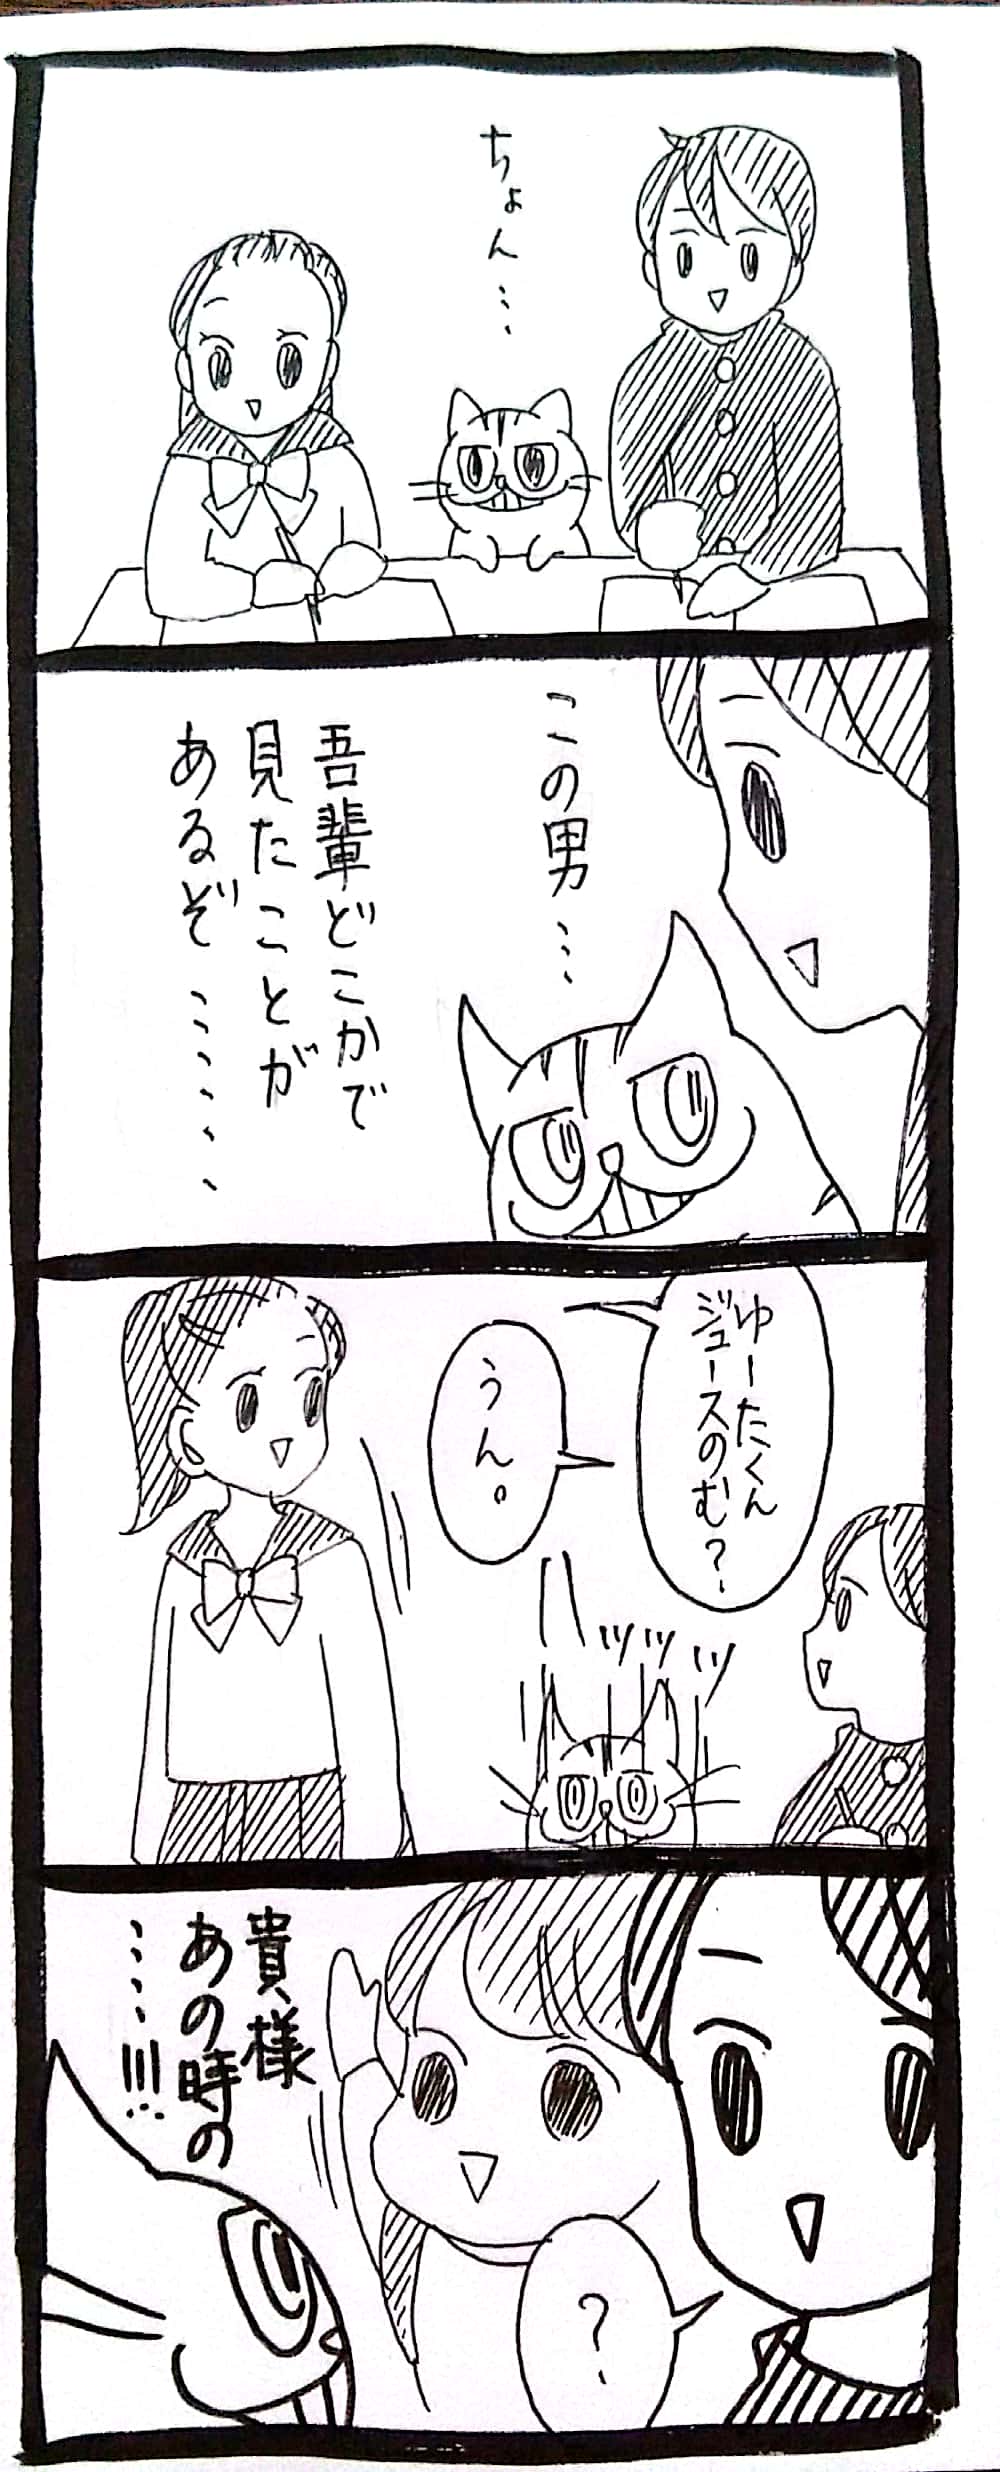 ちょん…
この男…
吾輩どこかで
見たことが
あるぞ……
ゆーたくん
ジュースのむ?
うん。
ッッッ
貴様
あの時の
……!!!
?